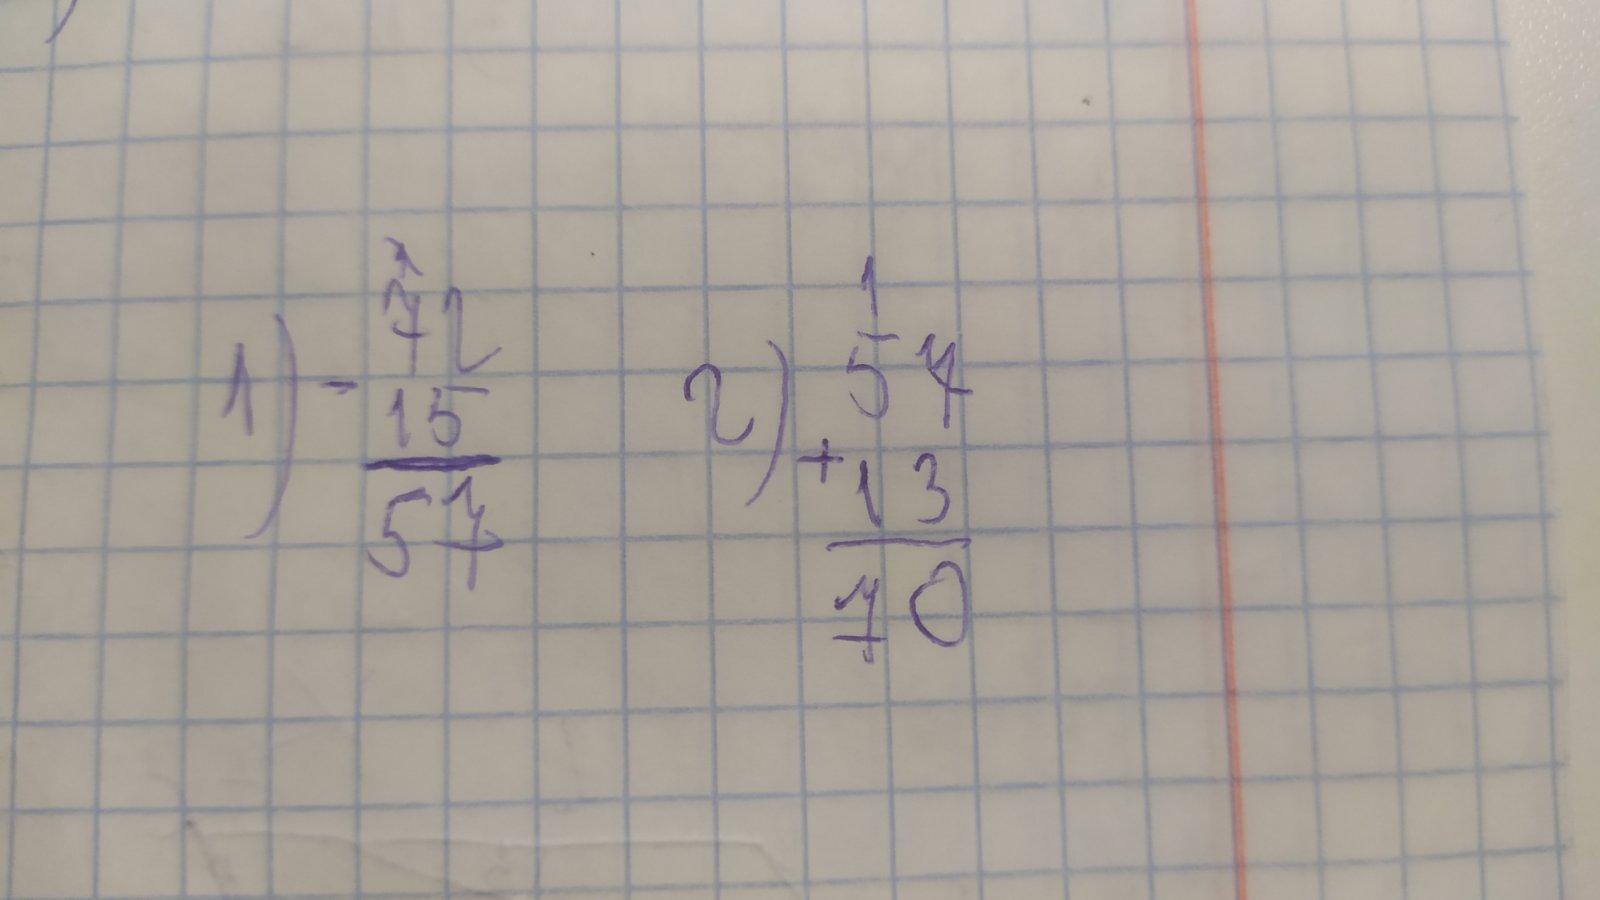 1) - 72
15
57
2) 1
57
+ 13
70